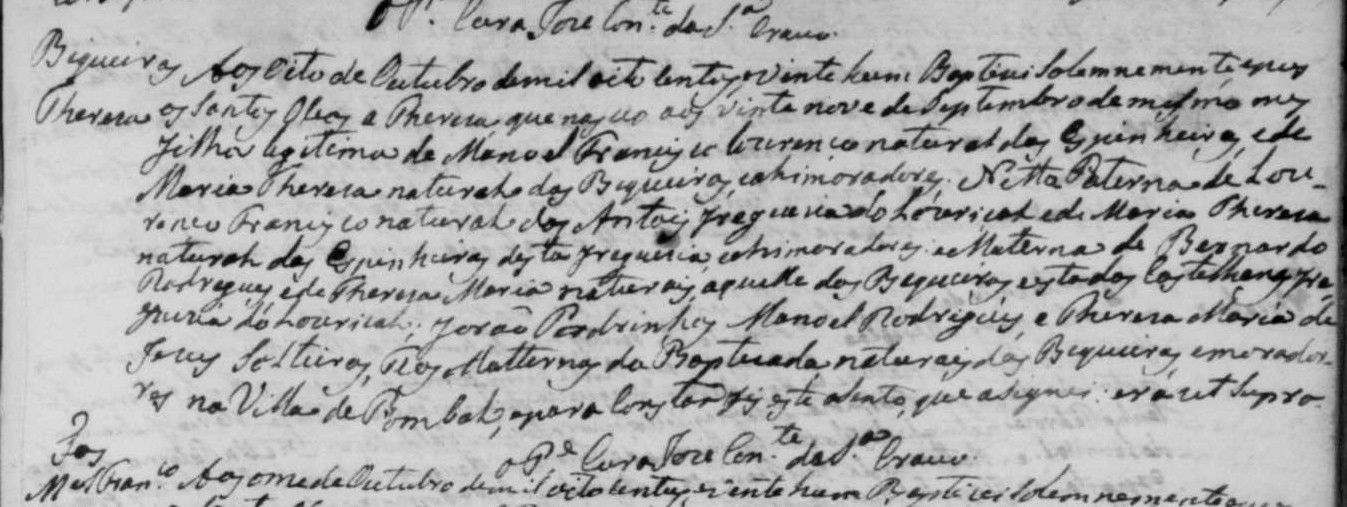 o P.e Cura Joze Con.te da S.a Cravo.
Biqueiras Aos Oito de Outubro de mil oito centos, e vinte hum Baptizei solemnemente e puz
Thereza os Santos Oleos a Thereza, que nasceo aos vinte nove de Septembro de mesmo mez
filha legitima de Manoel Francisco Lourenço natural das Espinheiras, e de
Maria Thereza natural das Biqueiras, e ahi moradores. Netta Paterna de Lou-
renco Francisco natural dos Antões freguezia do Louriçal e de Maria Thereza
natural das Espinheiras desta freguezia, e ahi moradores: e Materna de Bernardo
Rodrigues e de Thereza Maria naturais, aquelle das Biqueiras, e esta dos Castelhanos fre-
guezia do Louriçal; forão Padrinhos Manoel Rodrigues, e Thereza Maria de
Jesus Solteiros, Tios Matternos da Baptizada naturais das Biqueiras, e morado-
res na Villa de Pombal, e para constar fiz este asento, que asignei: era ut supra.
o P.e Cura Joze Con.te da S.a Cravo.
Fos
M.el Fran.co Aos onze de Outubro de mil oito centos, e vinte hum Baptizei solemnemente e puz